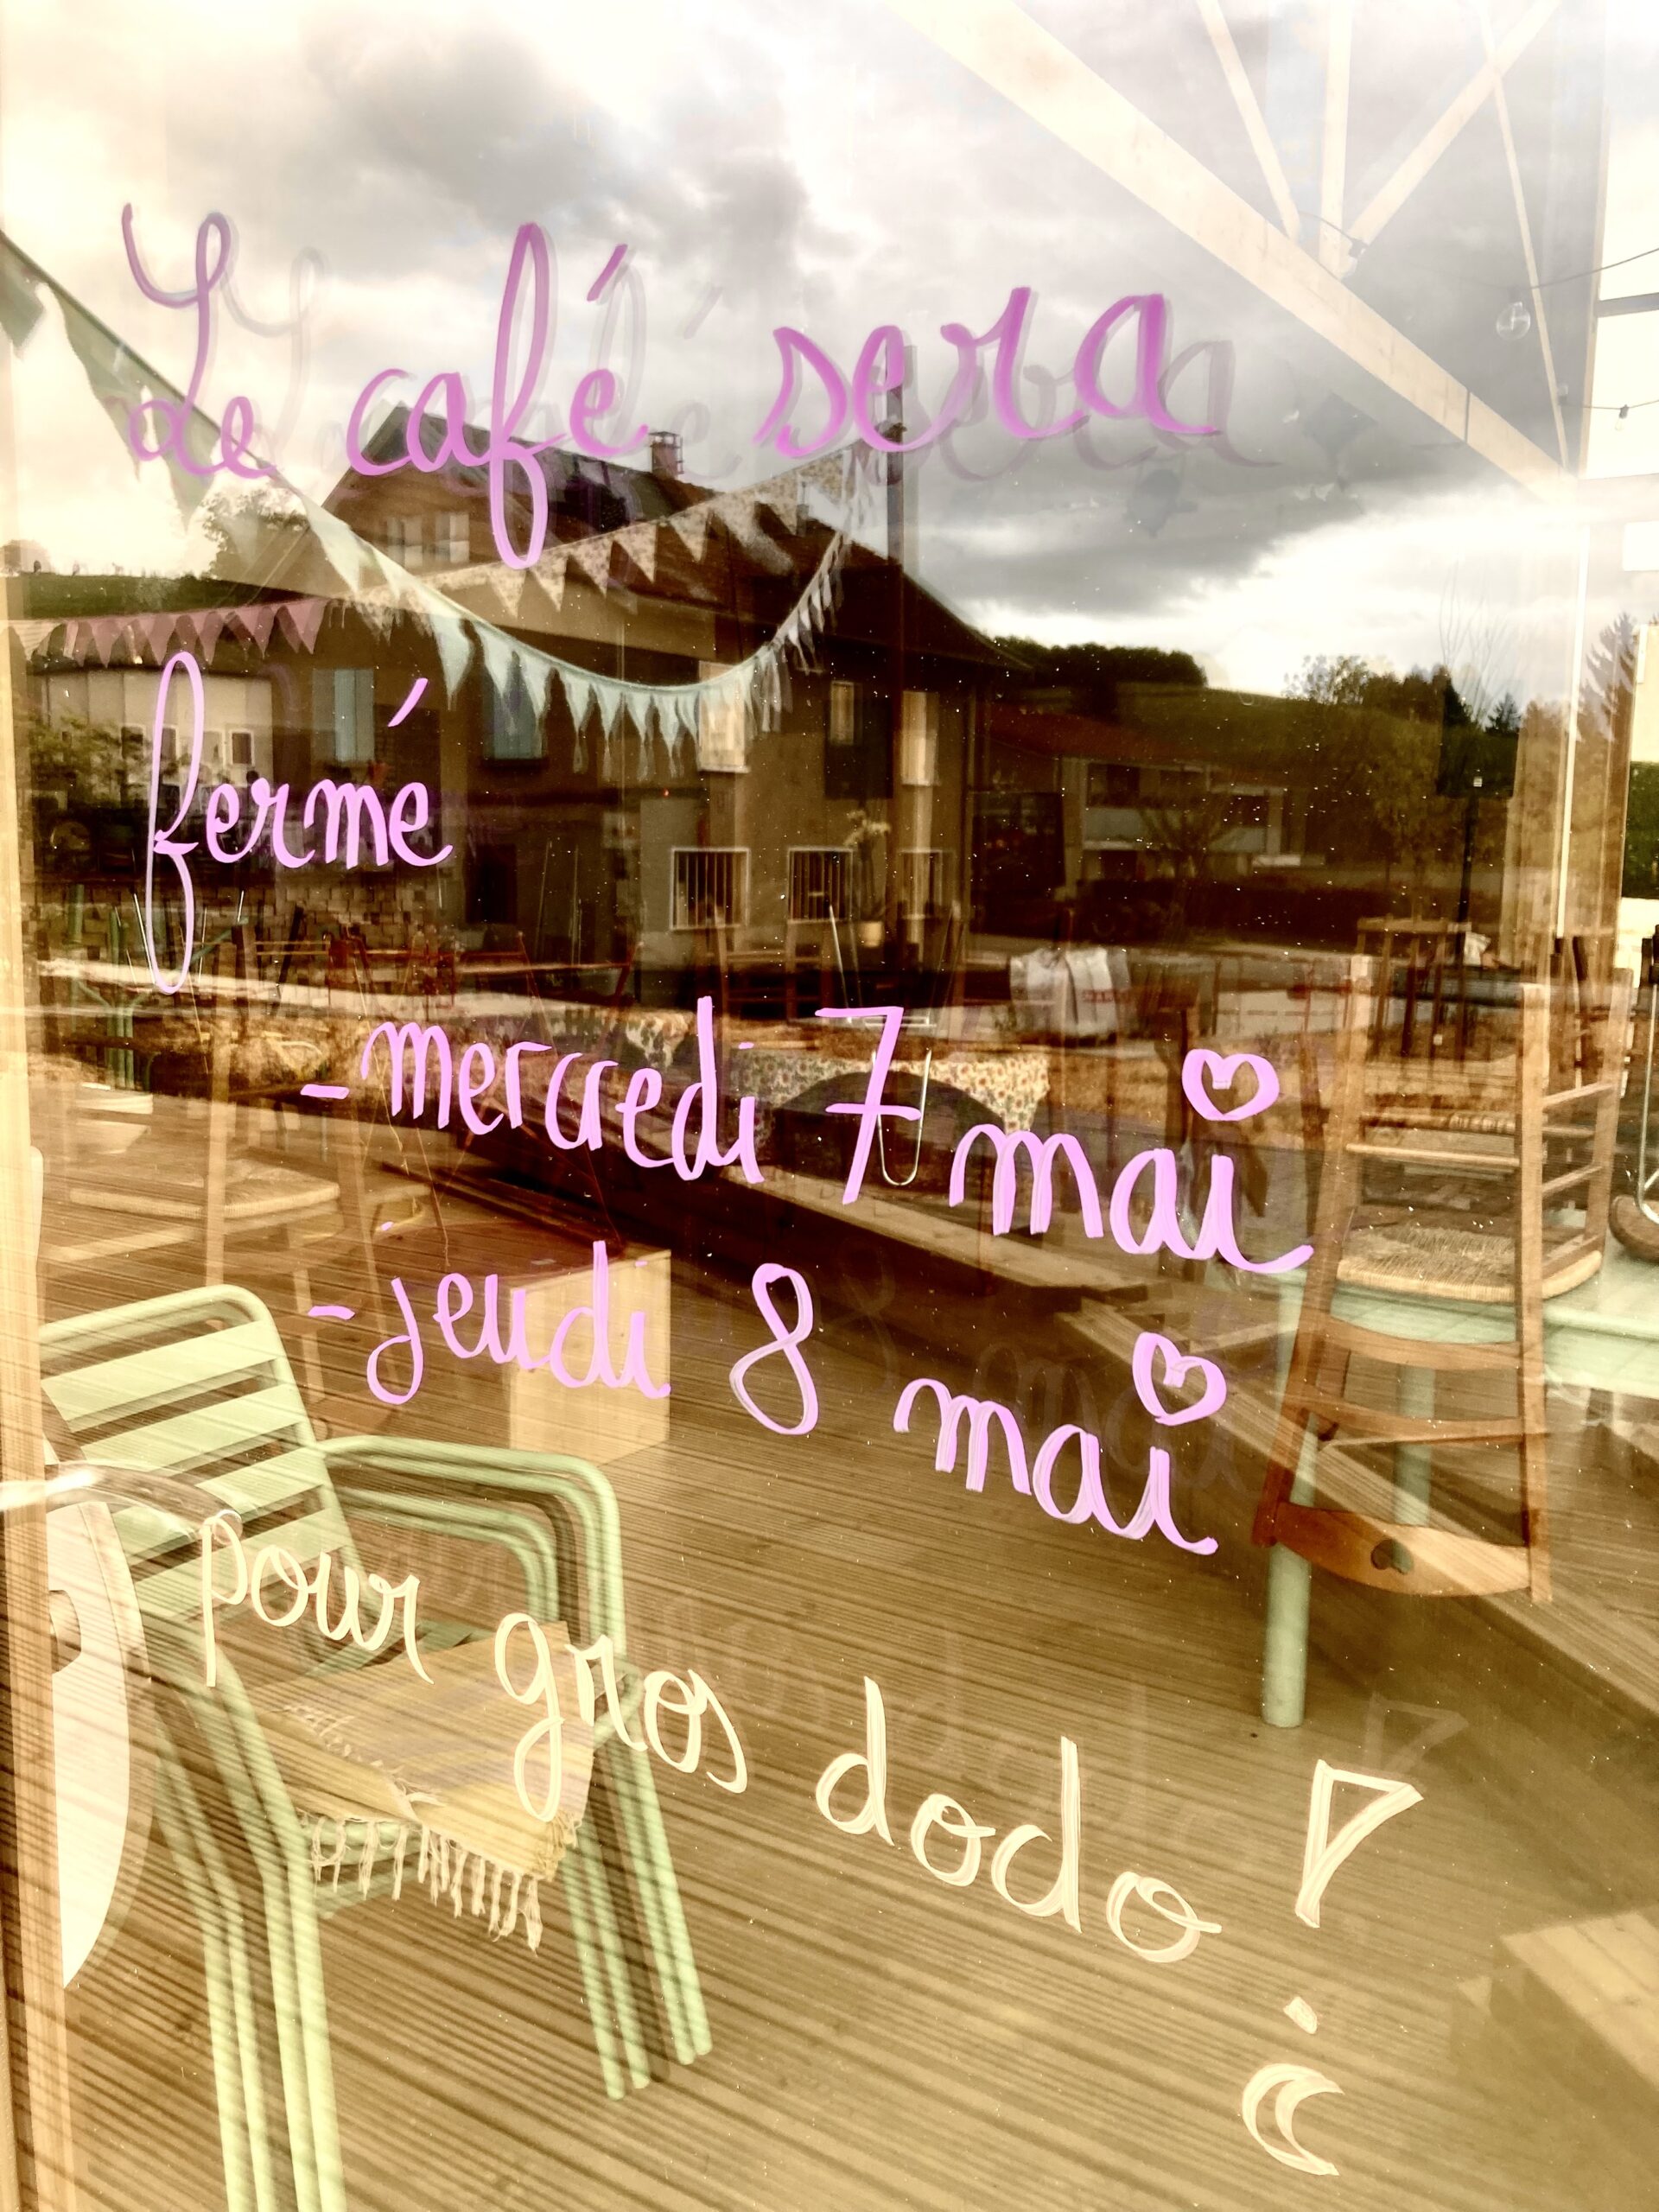 Le café sera
fermé
- mercredi 7 mai
- jeudi 8 mai
pour gros dodo !